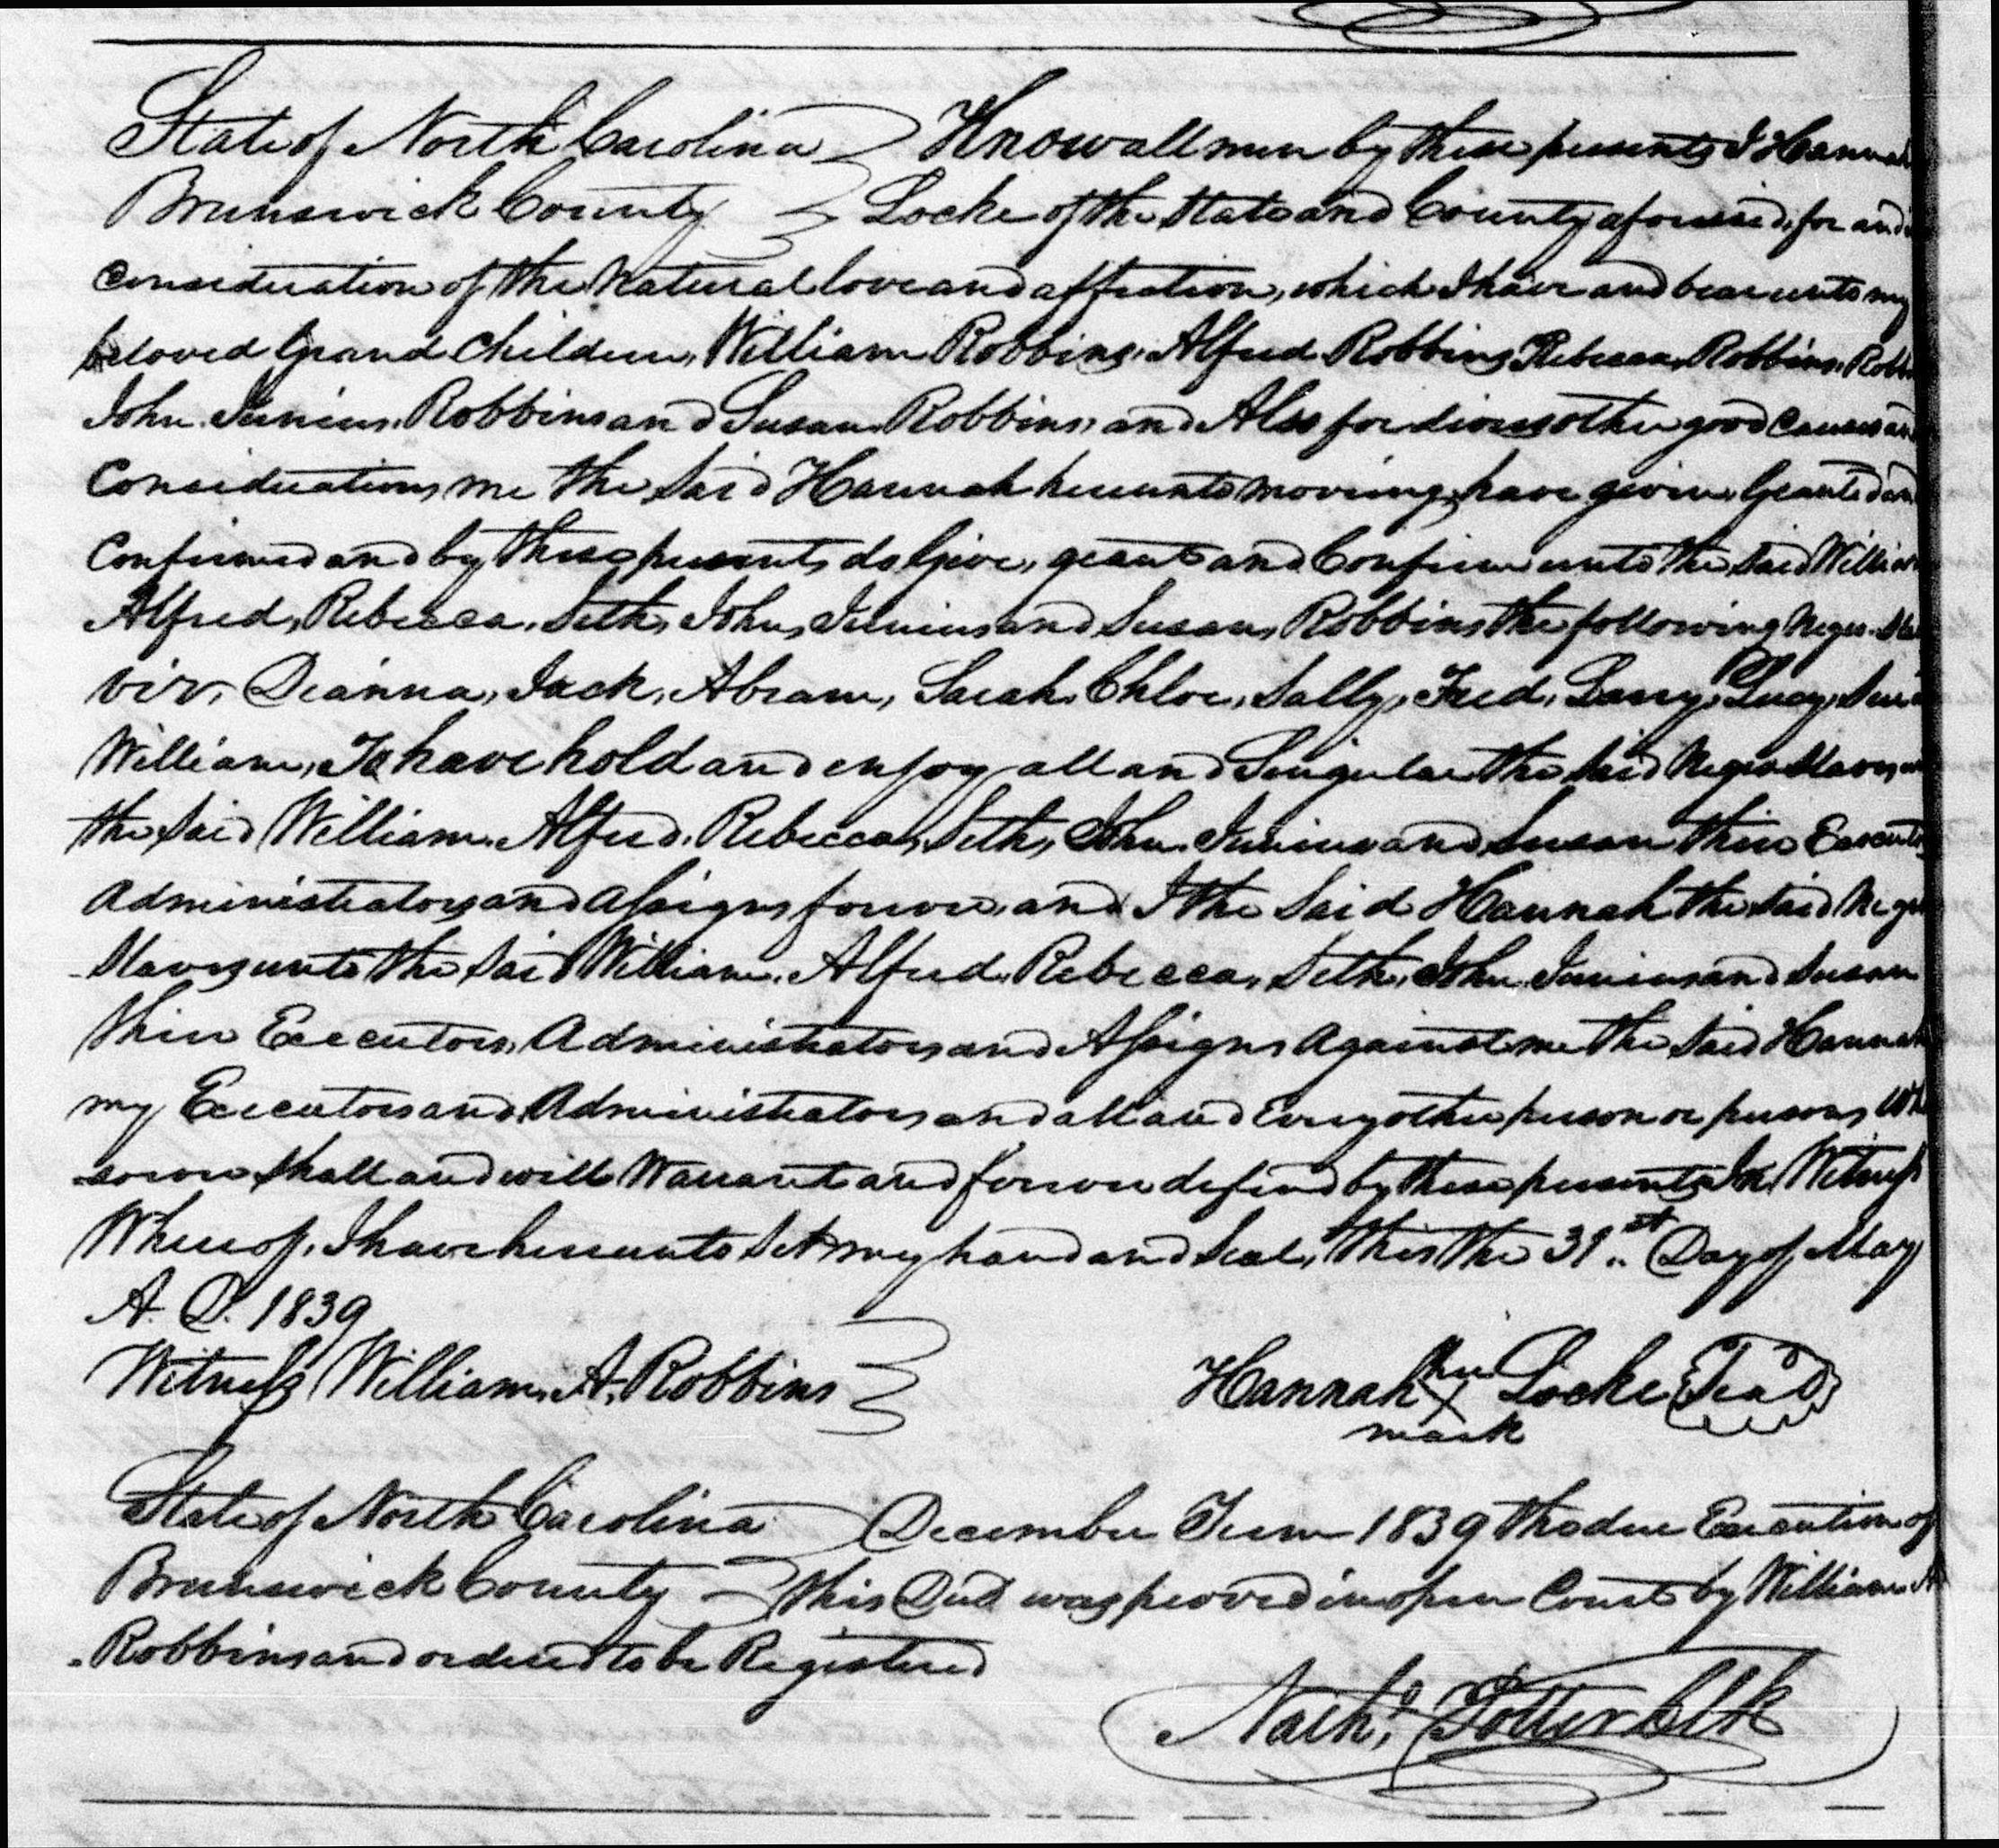 State of North Carolina Know all men by these presents I Hannah
Brunswick County Locke of the State and County aforesaid, for and
Consideration of the Natural love and affection, which I have and bear unto my
beloved Grand Children, William Robbins, Alfred Robbins, Rebecca Robbins, Robb
John Junius Robbins and Susan Robbins, and Also for divers other good Causes an
Considerations me the Said Hannah hereunto moving, have given, Granted an
Confirmed and by these presents do Give, grant and Confirm unto the Said William
Alfred, Rebecca, Seth, John, Junius and Susan, Robbins the following Negro
Viz, Dianna, Jack, Abram, Sarah, Chloe, Sally, Fred, Lucy,
William, To have hold and enjoy all and Singular the Said Negro Slaves
the Said William, Alfred, Rebecca, Seth, John, Junius and Susan their Executo
Administrators and Assigns forever, and I the Said Hannah the Said Negro
Slaves unto the Said William, Alfred, Rebecca, Seth, John, Junius and Susan
their Executors, Administrators and Assigns Against me the Said Hannah
my Executors and Administrators and all and Every other person or persons, Wh
soever shall and will Warrant and forever defend by these presents In Witness
Whereof, I have hereunto Set my hand and Seal, this the 31st Day of May
A. D. 1839
Witness William A. Robbins Hannah her X Locke Seal
mark
State of North Carolina December Term 1839 the due Execution of
Brunswick County this Deed was proved in open Court by William A
Robbins and ordered to be Registered
Nath'l Potter Clk